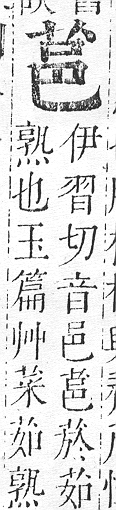 苢
伊習切音邑苢菸茹
熟也玉篇艸菜茹熟